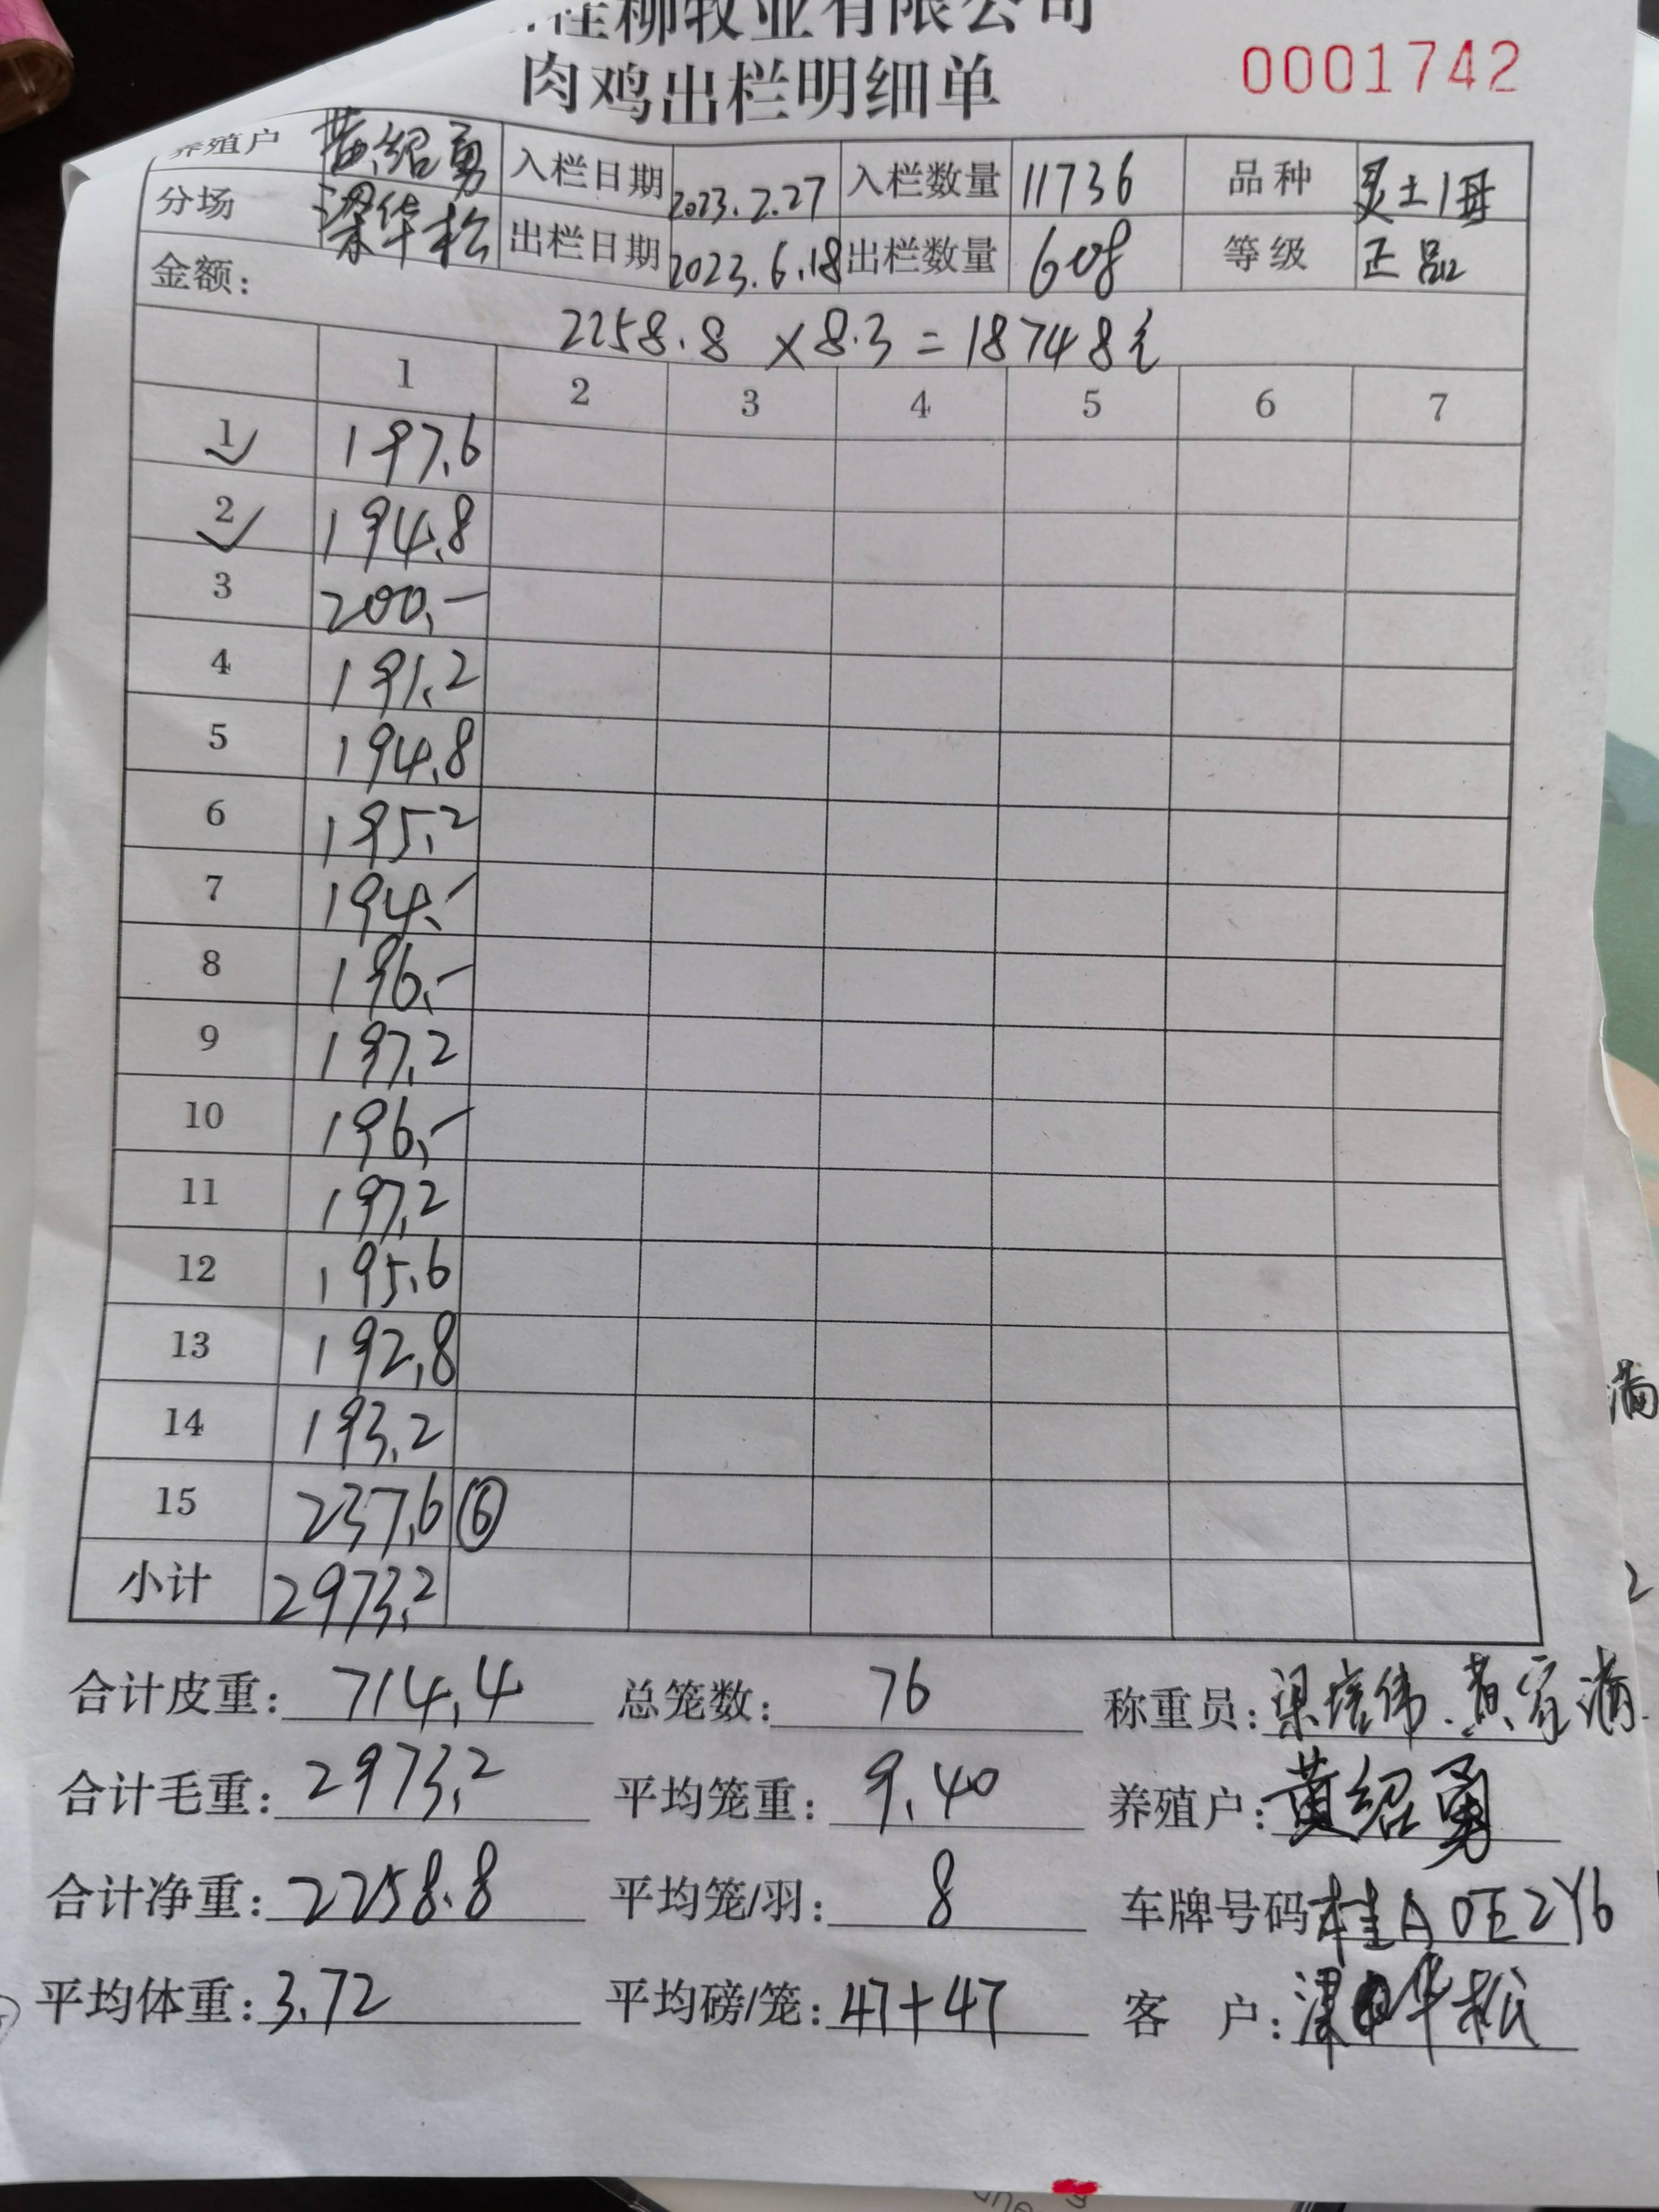 桂柳牧业有限公司
肉鸡出栏明细单 0001742
养殖户 黄绍勇 入栏日期 2023.2.27 入栏数量 11736 品种 灵土1母
分场 梁华松 出栏日期 2023.6.18 出栏数量 608 等级 正品
金额:
2258.8 × 8.3 = 18748元
1 2 3 4 5 6 7
1 197.6
2 194.8
3 200.-
4 191.2
5 194.8
6 195.2
7 194.-
8 196.-
9 197.2
10 196.-
11 197.2
12 195.6
13 192.8
14 193.2
15 237.6 ⑥
小计 2973.2
合计皮重: 714.4 总笼数: 76 称重员: 梁培伟.黄家满
合计毛重: 2973.2 平均笼重: 9.40 养殖户: 黄绍勇
合计净重: 2258.8 平均笼/羽: 8 车牌号码 桂A0E2Y6
平均体重: 3.72 平均磅/笼: 47+47 客户: 梁华松
满
2